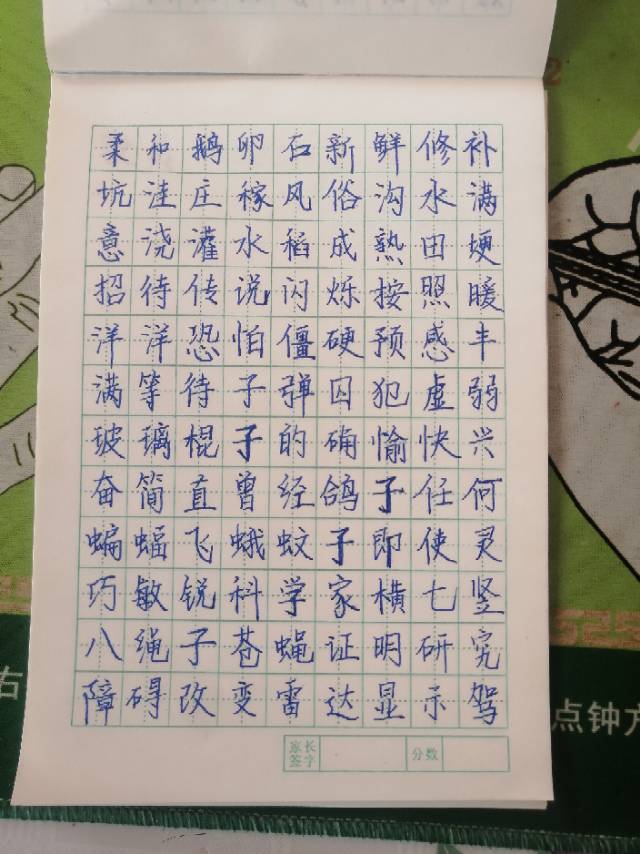 柔和鹅卵石新鲜修补
坑洼庄稼风俗沟水满
意浇灌水稻成熟田埂
招待传说闪烁按照暖
洋洋恐怕僵硬预感丰
满等待子弹囚犯虚弱
玻璃棍子的确愉快兴
奋简直曾经鸽子任何
蝙蝠飞蛾蚊子即使灵
巧敏锐科学家横七竖
八绳子苍蝇证明研究
障碍改变雷达显示驾
家长签字
分数
右
点钟方
2